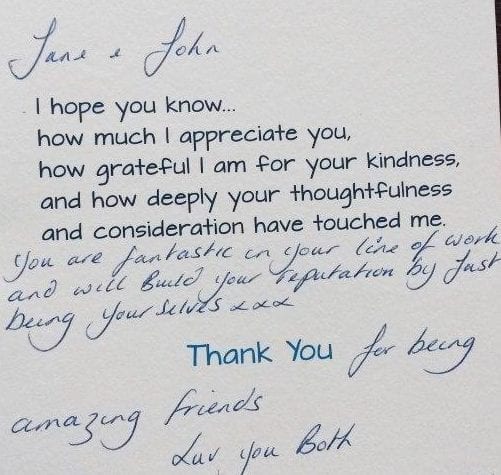 Jane & John
I hope you know...
how much I appreciate you,
how grateful I am for your kindness,
and how deeply your thoughtfulness
and consideration have touched me.
You are fantastic in your line of work
and will Build your reputation by Just
being your selves xxx
Thank You for being
amazing friends
Luv you Both